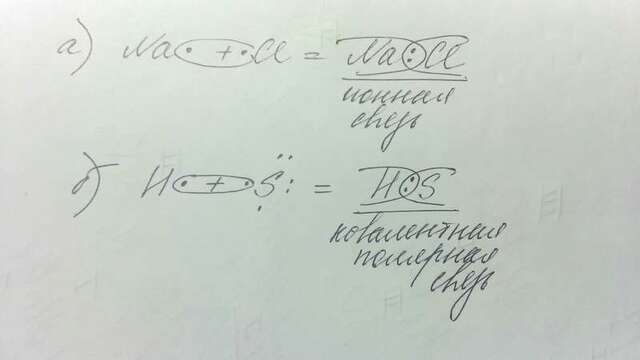 а) Na· + ·Cl = Na:Cl
ионная
связь
б) H· + ·S̤̈: = H:S
ковалентная
полярная
связь